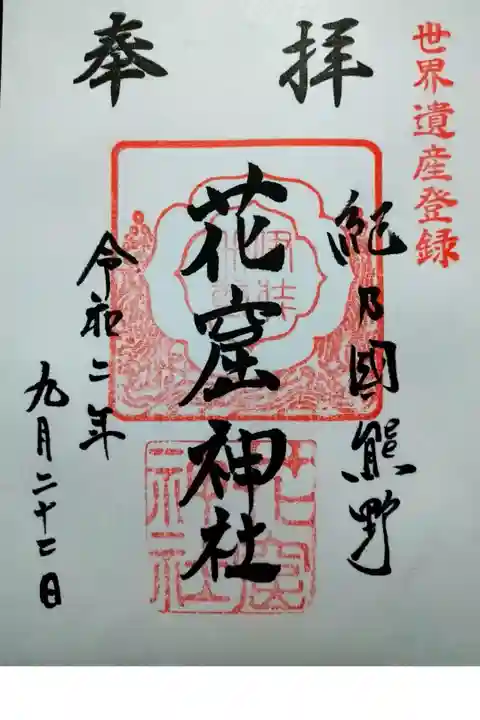 世界遺産登録
奉拝
紀乃國熊野
花窟神社
令和二年
九月二十二日
花窟
神社